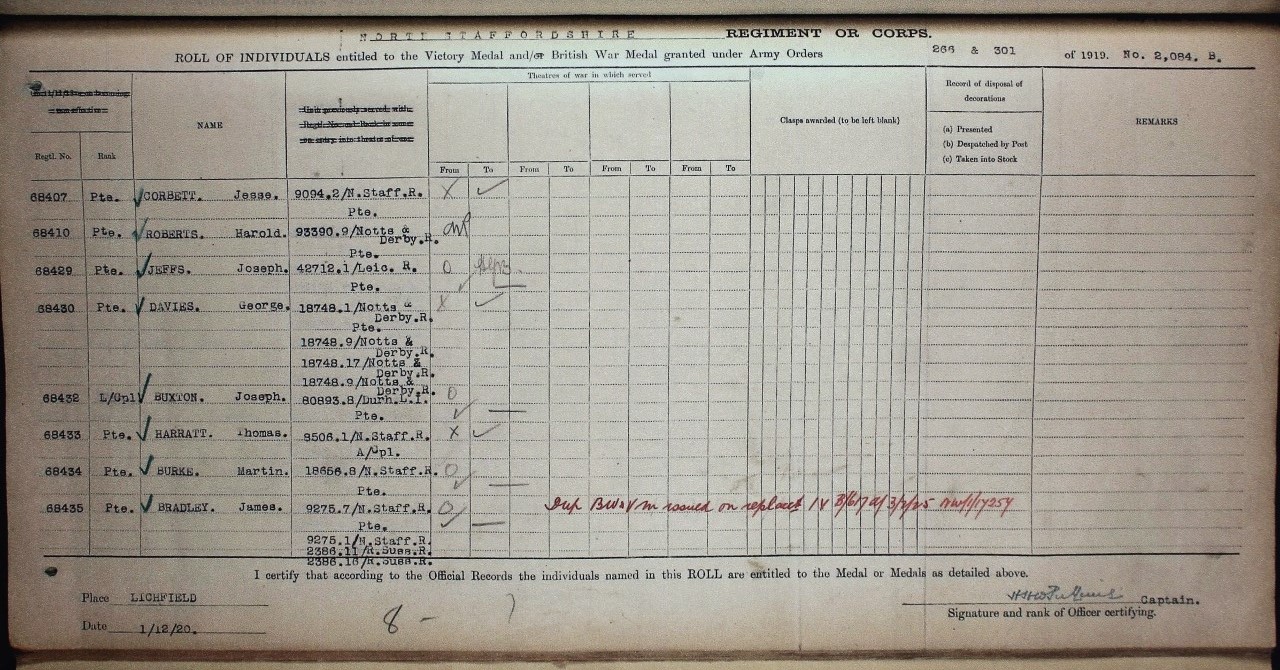 NORTH STAFFORDSHIRE REGIMENT OR CORPS.
ROLL OF INDIVIDUALS entitled to the Victory Medal and/or British War Medal granted under Army Orders 266 & 301 of 1919. No. 2,084. B.
Theatres of war in which served
Record of disposal of decorations
NAME
Unit previously served with, Regtl. No. and Rank in same on entry into theatre of war
Clasps awarded (to be left blank)
REMARKS
(a) Presented
(b) Despatched by Post
(c) Taken into Stock
Regtl. No. Rank From To From To From To From To
68407 Pte. CORBETT. Jesse. 9094.2/N.Staff.R. X ✓
Pte.
68410 Pte. ROBERTS. Harold. 93390.9/Notts &
Derby.R.
Pte.
68429 Pte. JEFFS. Joseph. 42712.1/Leic. R. O
Pte.
68430 Pte. DAVIES. George. 18748.1/Notts & X ✓
Derby.R.
Pte.
18748.9/Notts &
Derby.R.
18748.17/Notts &
Derby.R.
18748.9/Notts &
Derby.R.
68432 L/Cpl BUXTON. Joseph. 80893.8/Durh.L.I. O
Pte. ✓ —
68433 Pte. HARRATT. Thomas. 9506.1/N.Staff.R. X ✓
A/Cpl.
68434 Pte. BURKE. Martin. 18656.8/N.Staff.R. O
Pte. ✓ —
68435 Pte. BRADLEY. James. 9275.7/N.Staff.R. O Dup BW & V m issued on replact
Pte. ✓ —
9275.1/N.Staff.R.
2386.11/R.Suss.R.
2386.16/R.Suss.R.
I certify that according to the Official Records the individuals named in this ROLL are entitled to the Medal or Medals as detailed above.
Place LICHFIELD
Captain.
Signature and rank of Officer certifying.
Date 1/12/20.
8 -